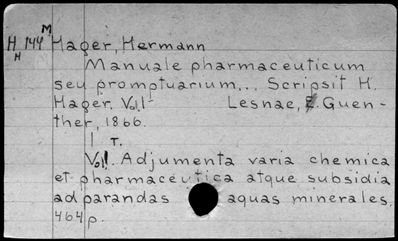 M
H 144 Hager, Hermann
H
Manuale pharmaceuticum
seu promptuarium... Scripsit H.
Hager. Vol.1- Lesnae, E. Guen-
ther, 1866.
1 т.
Vol.1. Adjumenta varia chemica
et pharmaceutica atque subsidia
ad parandas aquas minerales.
464 p.